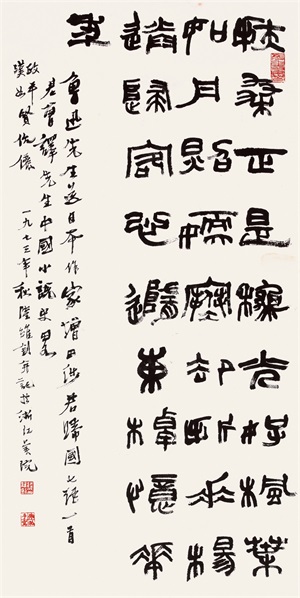 扶桑正是秋光好楓葉
如丹照嫩寒却折垂楊
送歸客心隨東棹憶華
年
魯迅先生送日本作家增田涉君歸國七絕一首
君曾譯先生中國小説史畧
賢伉儷 一九七三年秋陸維釗并記於浙江美院